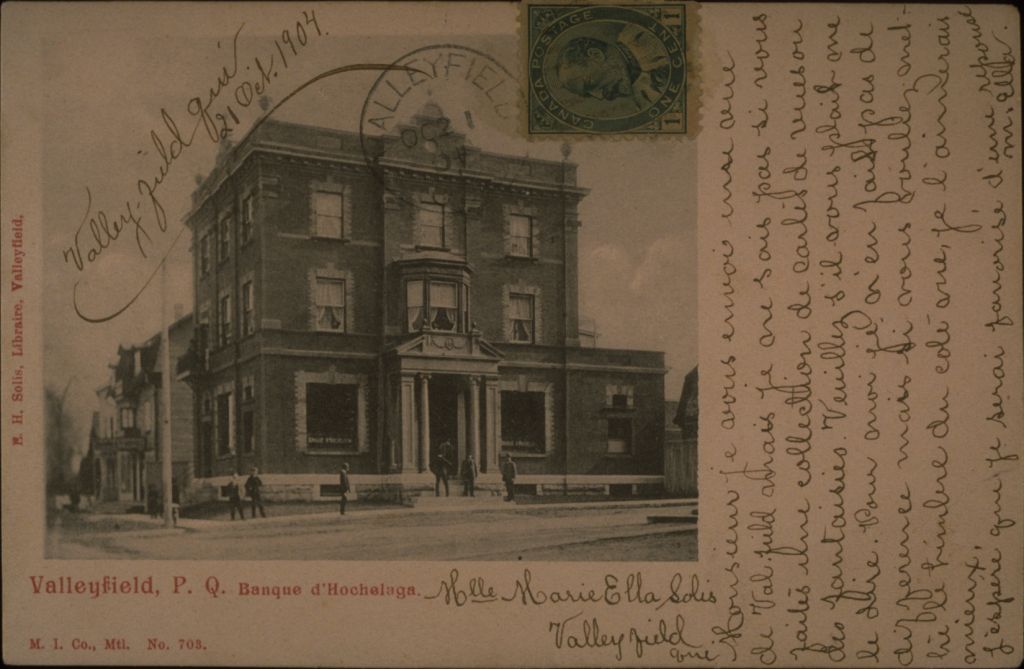 Valleyfield qué
21 Oct. 1904.
VALLEYFIELD
OC 21
04
CANADA POSTAGE
ONE CENT
1 1
E. H. Solis, Libraire, Valleyfield.
Valleyfield, P. Q. Banque d'Hochelaga.
M. I. Co., Mtl. No. 703.
Mlle Marie Ella Solis
Valleyfield
qué
Monsieur je vous envoi une vue
de Valleyfield mais je ne sais pas si vous
faites une collection de cartes de vues ou
des fantaisies. Veuillez s'il vous plait me
le dire. Pour moi je n'en fait pas de
différence mais si vous vouliez met-
tre le timbre du coté vue, je l'aimerais
mieux.
J'espère que je serai favorisé d'une réponse
M. Ella.